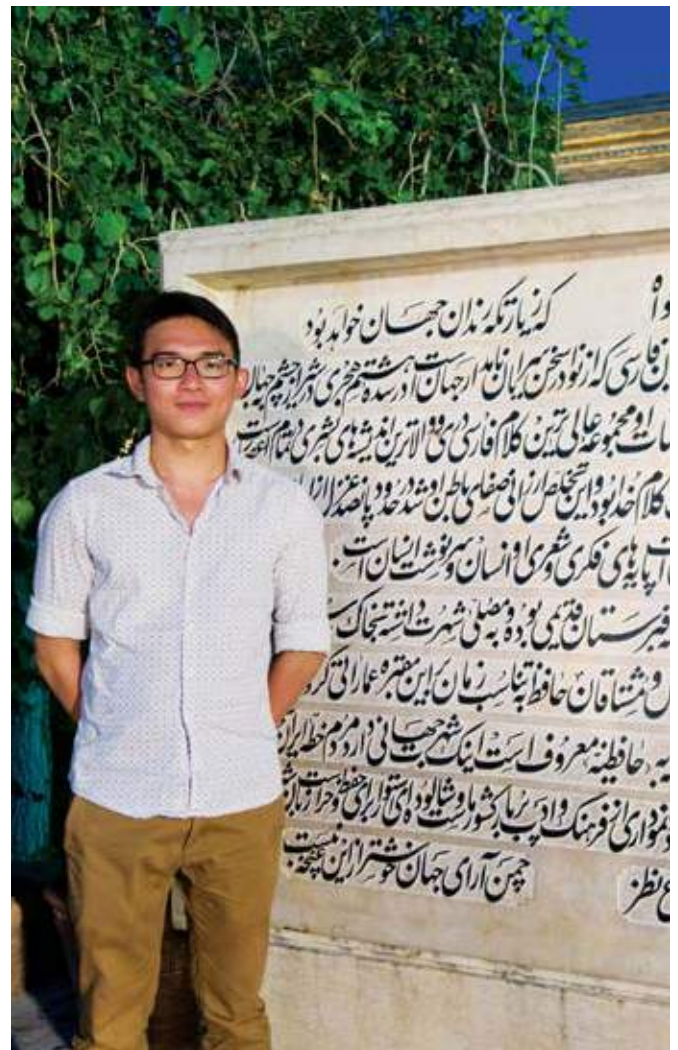 که زیارتگه رندان جهان خواهد بود
فارسی که از نوادر سخن سرایان نامدار جهان است در سده هشتم هجری در شیراز چشم به جهان
و مجموعه عالی ترین کلام فارسی دری و والاترین اندیشه های بشری در تمام اعصار است
کلام خدا بود و این تخلص ارزانی صفای باطن او شد در حدود پانصد غزل از
پایه های فکری و شعری او انسان و سرنوشت انسان است
قبرستان قدیمی بوده و به مصلی شهرت داشته بخاک
و مشتاقان حافظ به تناسب زمان براین مقبره عماراتی
به حافظیه معروف است اینک شهرت جهانی دارد مردم خطه ایران
نموداری از فرهنگ و ادب پربار کشور ماست و شالوده ای استوار برای حفظ و حراست از
نظر چمن آرای جهان خوشتر از این غنچه نبست